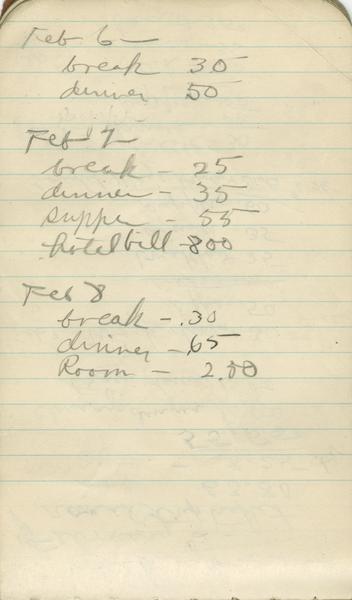 Feb 6 -
break 30
dinner 50
Feb 7 -
break - 25
dinner - 35
supper - 55
hotel bill - 800
Feb 8
break - .30
dinner - .65
Room - 2.00